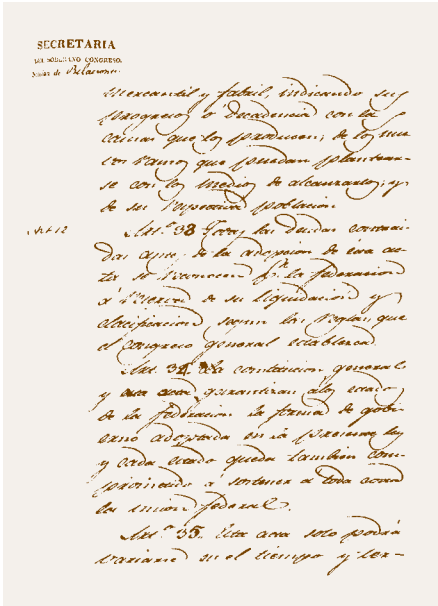 SECRETARIA
DEL SOBERANO CONGRESO.
Seccion de Relaciones.
mercantil y fabril, indicando sus
progresos ó decadencia con las
causas que los producen; de los nue
vos ramos que puedan plantear-
se con los medios de alcanzarlos; y
de su respectiva poblacion.
Art.º 33 Todas las deudas contrai-
das antes de la adopcion de esta ac-
ta se reconocen pr. la federacion
á reserva de su liquidacion y
clasificacion segun las reglas que
el congreso general establecerá.
Art. 34. La constitucion general
y esta acta garantizan a los estados
de la federacion la forma de gobi-
erno adoptada en la presente ley
y cada estado queda tambien com-
prometido á sostener á toda costa
la union federal.
Art.º 35. Esta acta solo podrá
variarse en el tiempo y ter-